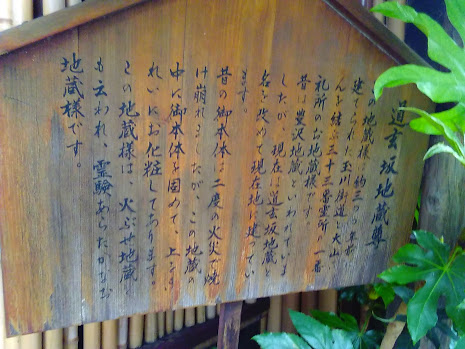 道玄坂地蔵尊
この地蔵様は約三〇〇年前
建てられた玉川街道と大山
を結ぶ三十三番霊所の一番
礼所のお地蔵様です。
昔は豊沢地蔵といわれていま
したが、現在は道玄坂地蔵と
名を改めて現在地に建ってい
ます。
昔の御本体は二度の火災で焼
け崩れ たがこの地蔵の
中に御本体を固めて、上を
れいにお化粧しております。
この地蔵様は、火ぶせ地蔵と
も云われ、霊験あらたかなお
地蔵様です。